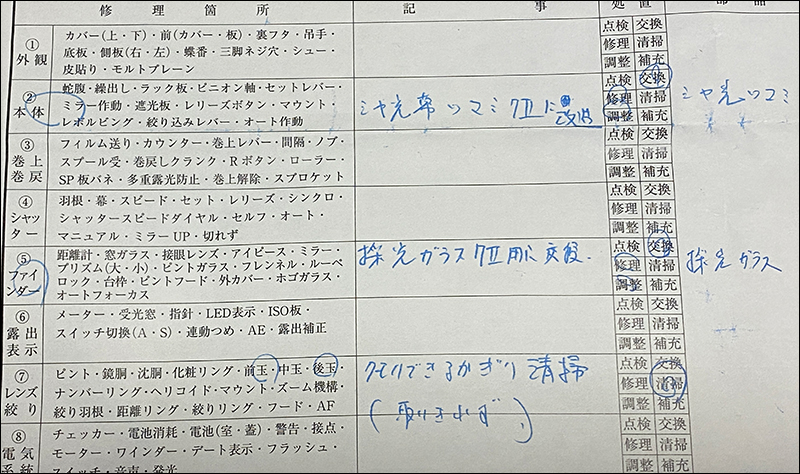 修理箇所 記事 処置 部品
① 外観
カバー(上・下)・前(カバー・板)・裏フタ・吊手・
底板・側板(右・左)・蝶番・三脚ネジ穴・シュー・
皮貼り・モルトプレーン
点検 交換
修理 清掃
調整 補充
② 本体
蛇腹・繰出し・ラック板・ピニオン軸・セットレバー・
ミラー作動・遮光板・レリーズボタン・マウント・
レボルビング・絞り込みレバー・オート作動
シャ光幕ツマミ クモリ
点検 交換
修理 清掃
調整 補充
シャ光ツマミ
③ 巻上 巻戻
フィルム送り・カウンター・巻上レバー・間隔・ノブ・
スプール受・巻戻しクランク・Rボタン・ローラー・
SP板バネ・多重露光防止・巻上解除・スプロケット
点検 交換
修理 清掃
調整 補充
④ シャッター
羽根・幕・スピード・セット・レリーズ・シンクロ・
シャッタースピードダイヤル・セルフ・オート・
マニュアル・ミラーUP・切れず
点検 交換
修理 清掃
調整 補充
⑤ ファインダー
距離計・窓ガラス・接眼レンズ・アイピース・ミラー・
プリズム(大・小)・ピントガラス・フレンネル・ルーペ
ロック・台枠・ピントフード・外カバー・ホゴガラス・
オートフォーカス
採光ガラス 用に交換.
点検 交換
修理 清掃
調整 補充
採光ガラス
⑥ 露出表示
メーター・受光窓・指針・LED表示・ISO板・
スイッチ切換(A・S)・連動つめ・AE・露出補正
点検 交換
修理 清掃
調整 補充
⑦ レンズ絞り
ピント・鏡胴・沈胴・化粧リング・前玉・中玉・後玉・
ナンバーリング・ヘリコイド・マウント・ズーム機構・
絞り羽根・距離リング・絞りリング・フード・AF
クモリできるかぎり清掃
(取りきれず)
点検 交換
修理 清掃
調整 補充
⑧ 電気系統
チェッカー・電池消耗・電池(室・蓋)・警告・接点・
モーター・ワインダー・デート表示・フラッシュ・
スイッチ・音声・発光
点検 交換
修理 清掃
調整 補充